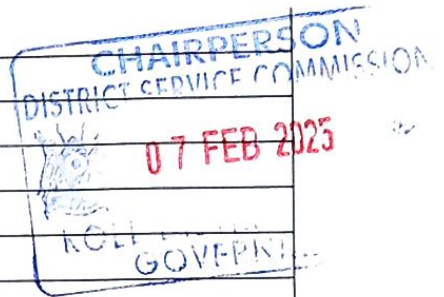 CHAIRPERSON
DISTRICT SERVICE COMMISSION
07 FEB 2025